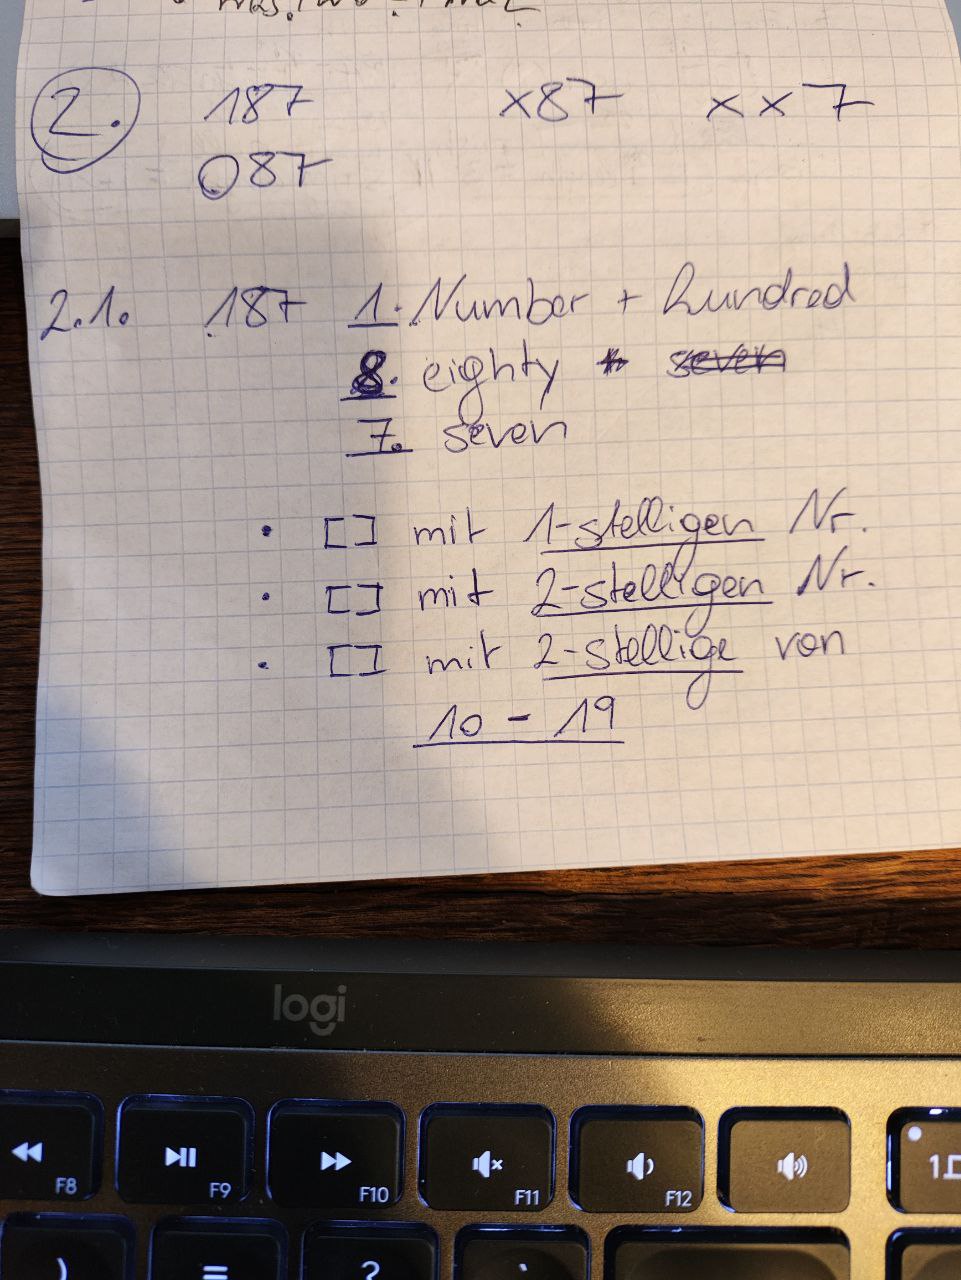 2. 187 x87 xx7
087
2.1. 187 1. Number + hundred
8. eighty seven
7. seven
• [] mit 1-stelligen Nr.
• [] mit 2-stelligen Nr.
• [] mit 2-stellige von
10 - 19
logi
F8 F9 F10 F11 F12 1
) = ? `